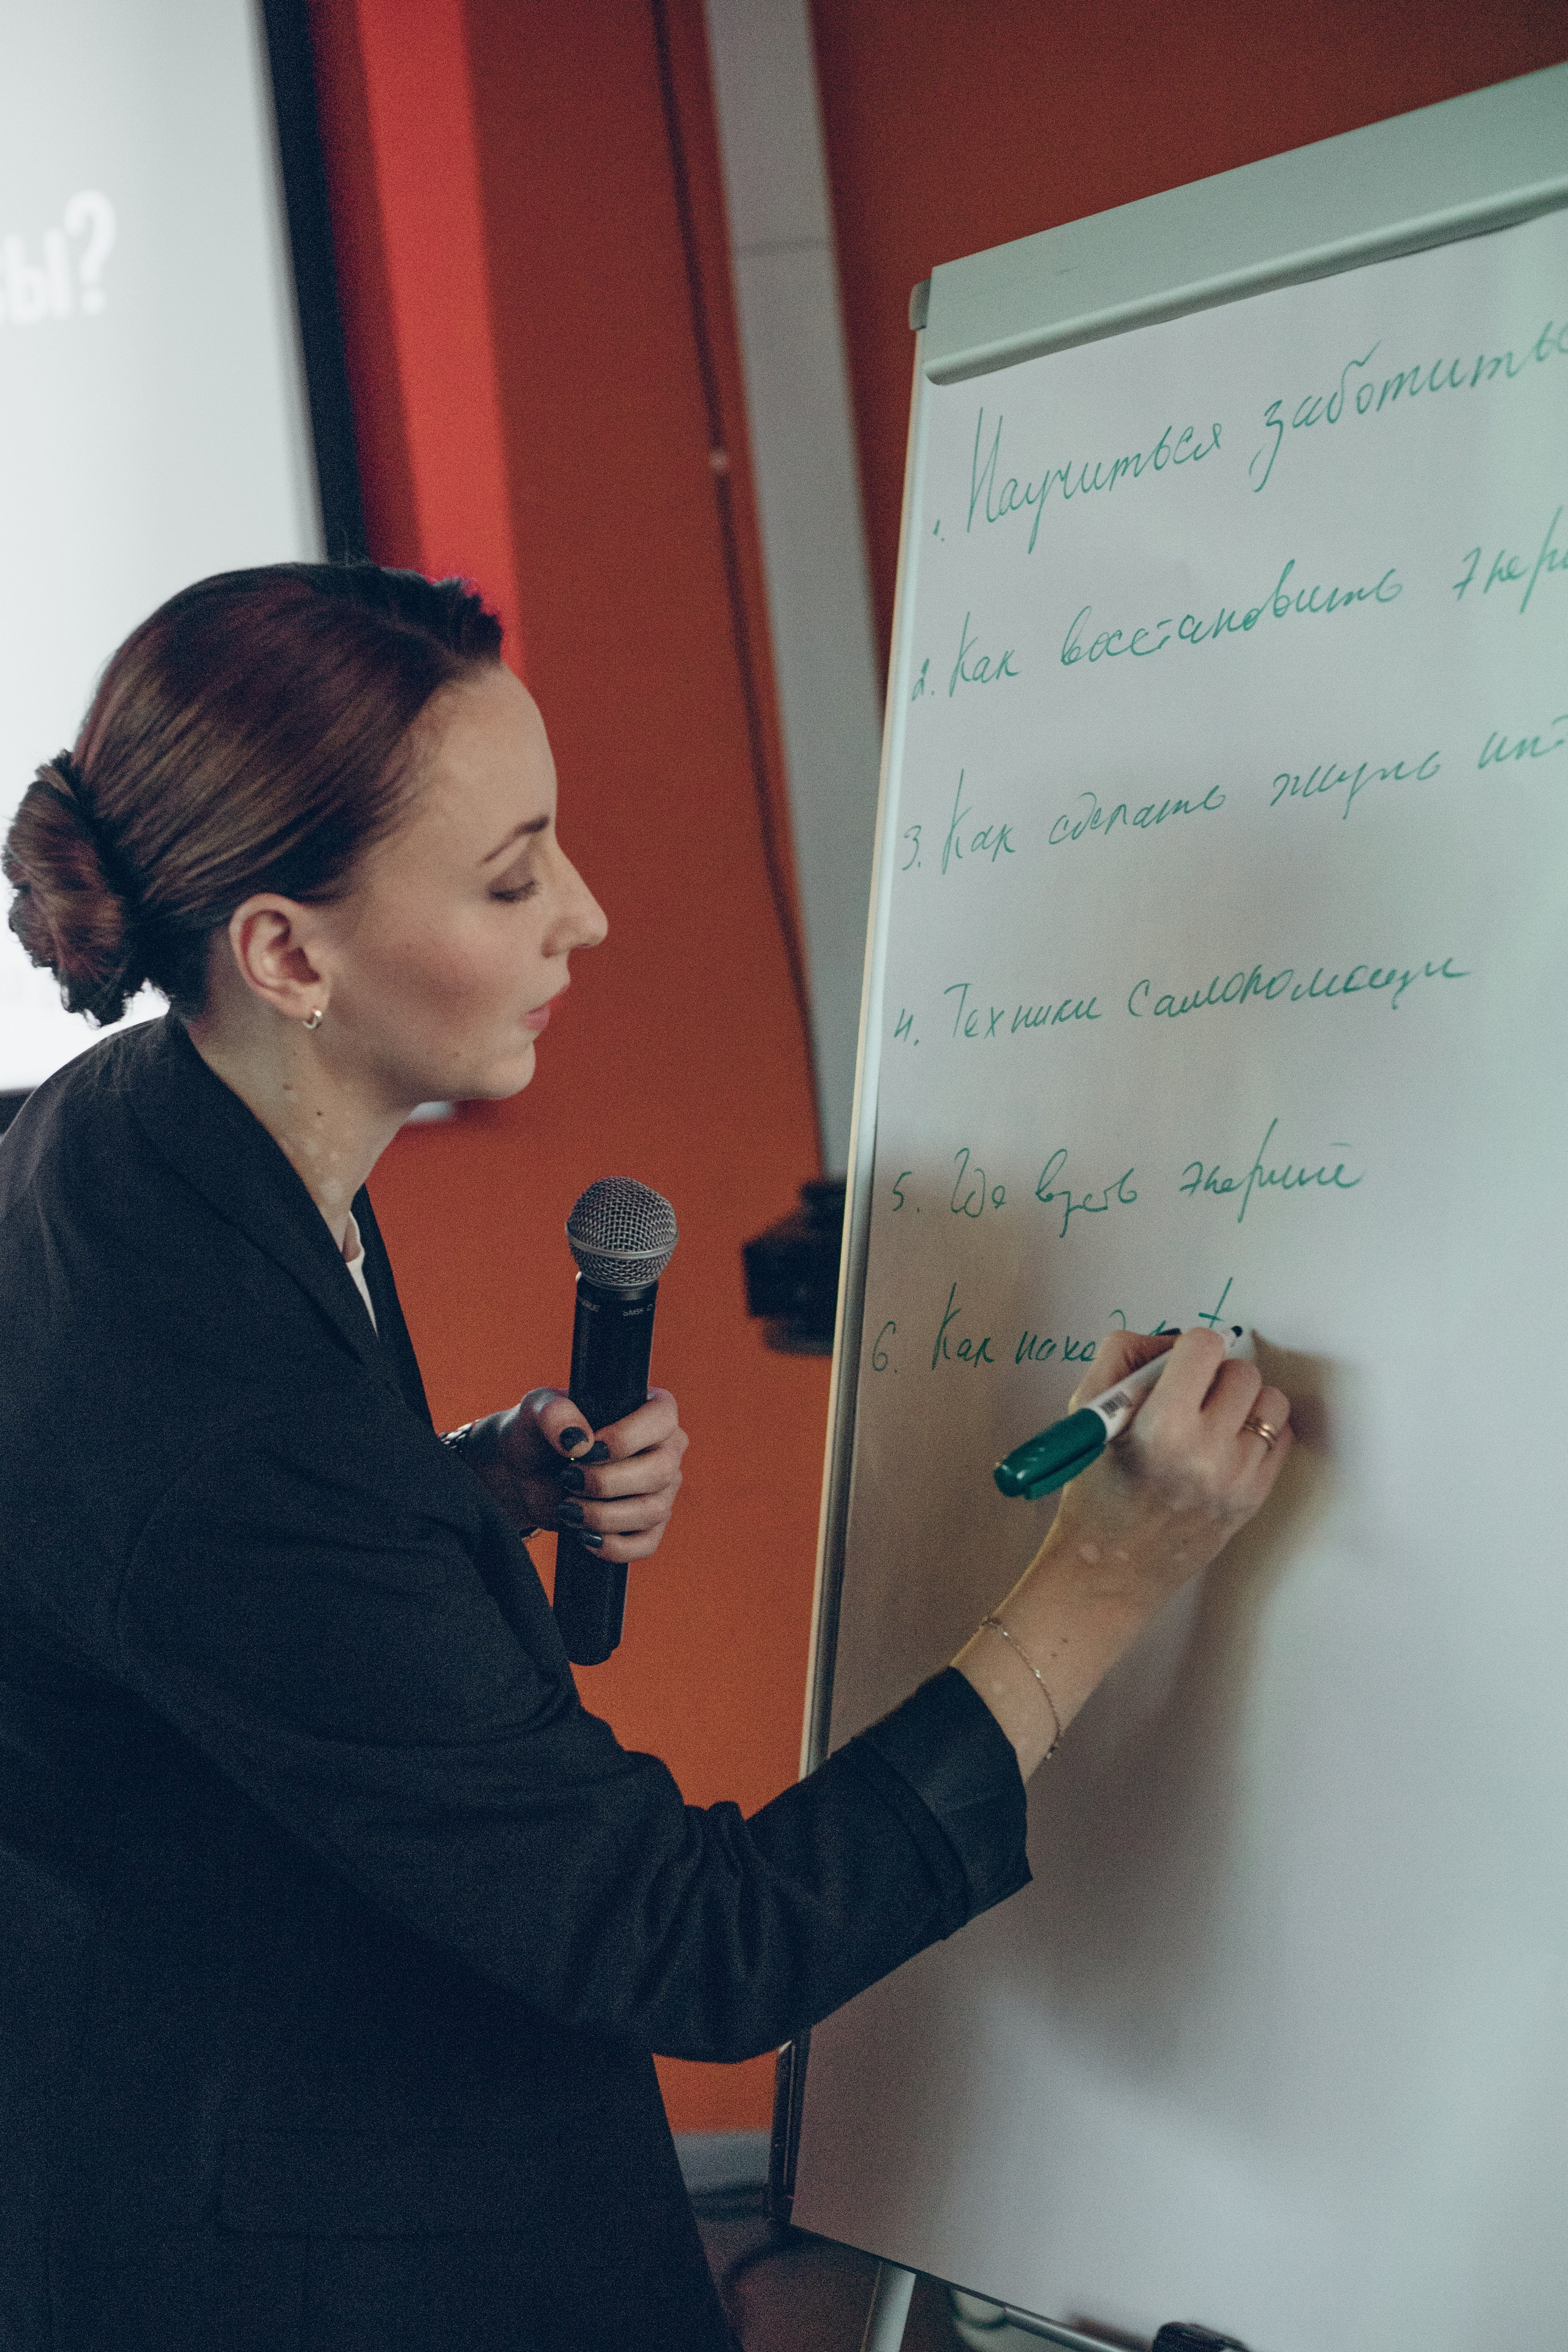 сы?
1. Научиться заботитьс
2. Как восстановить энерг
3. Как сделать жизнь инт
4. Техники самопомощи
5. Где взять энергию
6. Как наход